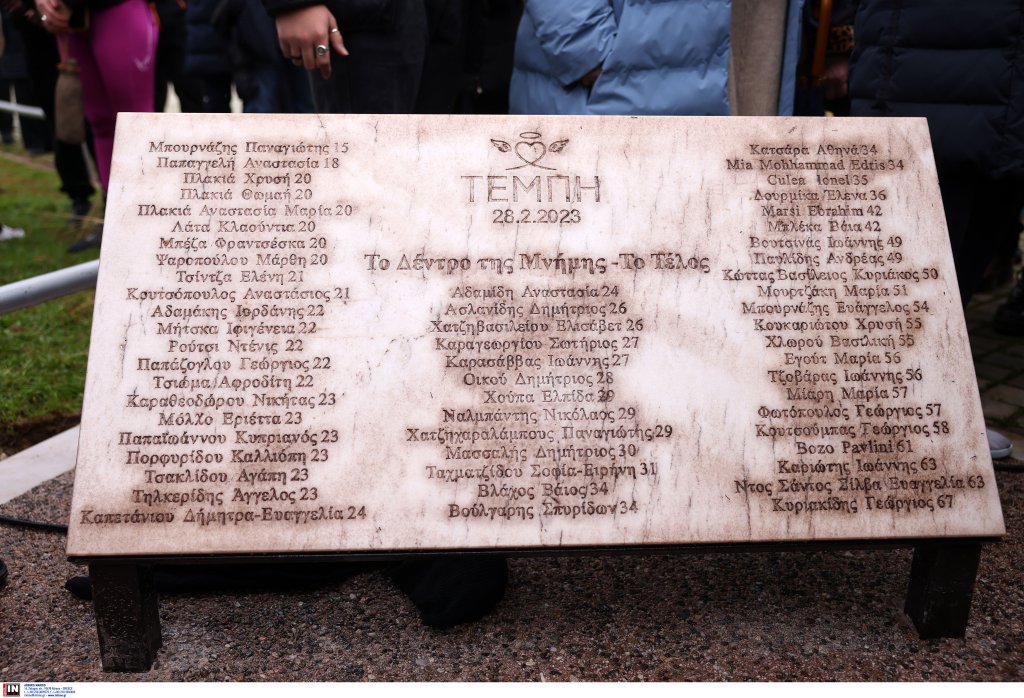 Μπουρνάζης Παναγιώτης 15
Παπαγγελή Αναστασία 18
Πλακιά Χρυσή 20
Πλακιά Θωμαή 20
Πλακιά Αναστασία Μαρία 20
Λάτα Κλαούντια 20
Μπέζα Φραντσέσκα 20
Ψαροπούλου Μάρθη 20
Τσίντζα Ελένη 21
Κουτσόπουλος Αναστάσιος 21
Αδαμάκης Ιορδάνης 22
Μήτσκα Ιφιγένεια 22
Ρούτσι Ντένις 22
Παπάζογλου Γεώργιος 22
Τσιώμα Αφροδίτη 22
Καραθεόδώρου Νικήτας 23
Μόλχο Εριέττα 23
Παπαϊωάννου Κυπριανός 23
Πορφυρίδου Καλλιόπη 23
Τσακλίδου Αγάπη 23
Τηλκερίδης Άγγελος 23
Καπετάνιου Δήμητρα-Ευαγγελία 24
ΤΕΜΠΗ
28.2.2023
Το Δέντρο της Μνήμης -Το Τέλος
Αδαμίδη Αναστασία 24
Ασλανίδης Δημήτριος 26
Χατζηβασιλείου Ελισάβετ 26
Καραγεωργίου Σωτήριος 27
Καρασάββας Ιωάννης 27
Οικού Δημήτριος 28
Χούπα Ελπίδα 29
Ναλμπάντης Νικόλαος 29
Χατζηχαραλάμπους Παναγιώτης 29
Μασσαλής Δημήτριος 30
Ταχματζίδου Σοφία-Ειρήνη 31
Βλάχος Βάιος 34
Βούλγαρης Σπυρίδων 34
Κατσάρα Αθηνά 34
Mia Mohhammad Edris 34
Culea Ionel 35
Δουρμίκα Έλενα 36
Marsi Ebrahim 42
Μπλέκα Βάια 42
Βουτσινάς Ιωάννης 49
Παυλίδης Ανδρέας 49
Κώττας Βασίλειος Κυριάκος 50
Μουρτζάκη Μαρία 51
Μπουρνάζης Ευάγγελος 54
Κουκαριώτου Χρυσή 55
Χλωρού Βασιλική 55
Εγούτ Μαρία 56
Τζοβάρας Ιωάννης 56
Μιάρη Μαρία 57
Φωτόπουλος Γεώργιος 57
Κουτσούμπας Γεώργιος 58
Bozo Pavlini 61
Καριώτης Ιωάννης 63
Ντος Σάντος Σίλβα Ευαγγελία 63
Κυριακίδης Γεώργιος 67
IN